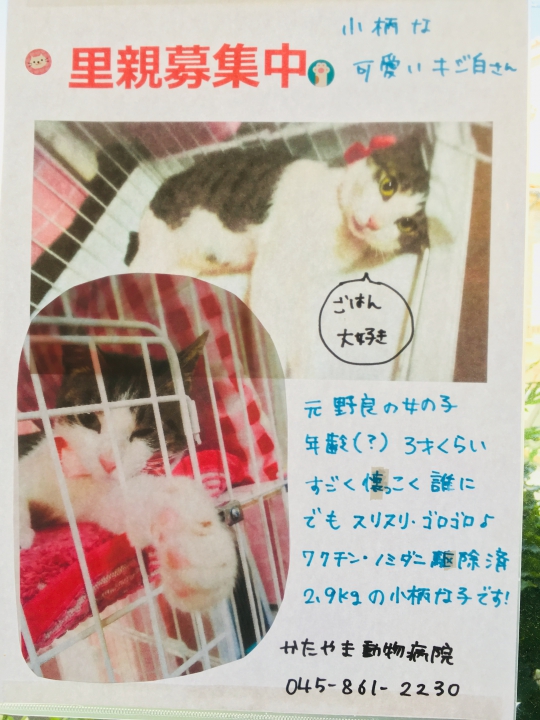 小柄な
可愛いキジ白さん
里親募集中
ごはん
大好き
元野良の女の子
年齢(?) 3才くらい
すごく懐っこく誰に
でもスリスリ・ゴロゴロ♪
ワクチン・ノミダニ駆除済
2.9kgの小柄な子です!
かたやま動物病院
045-861-2230